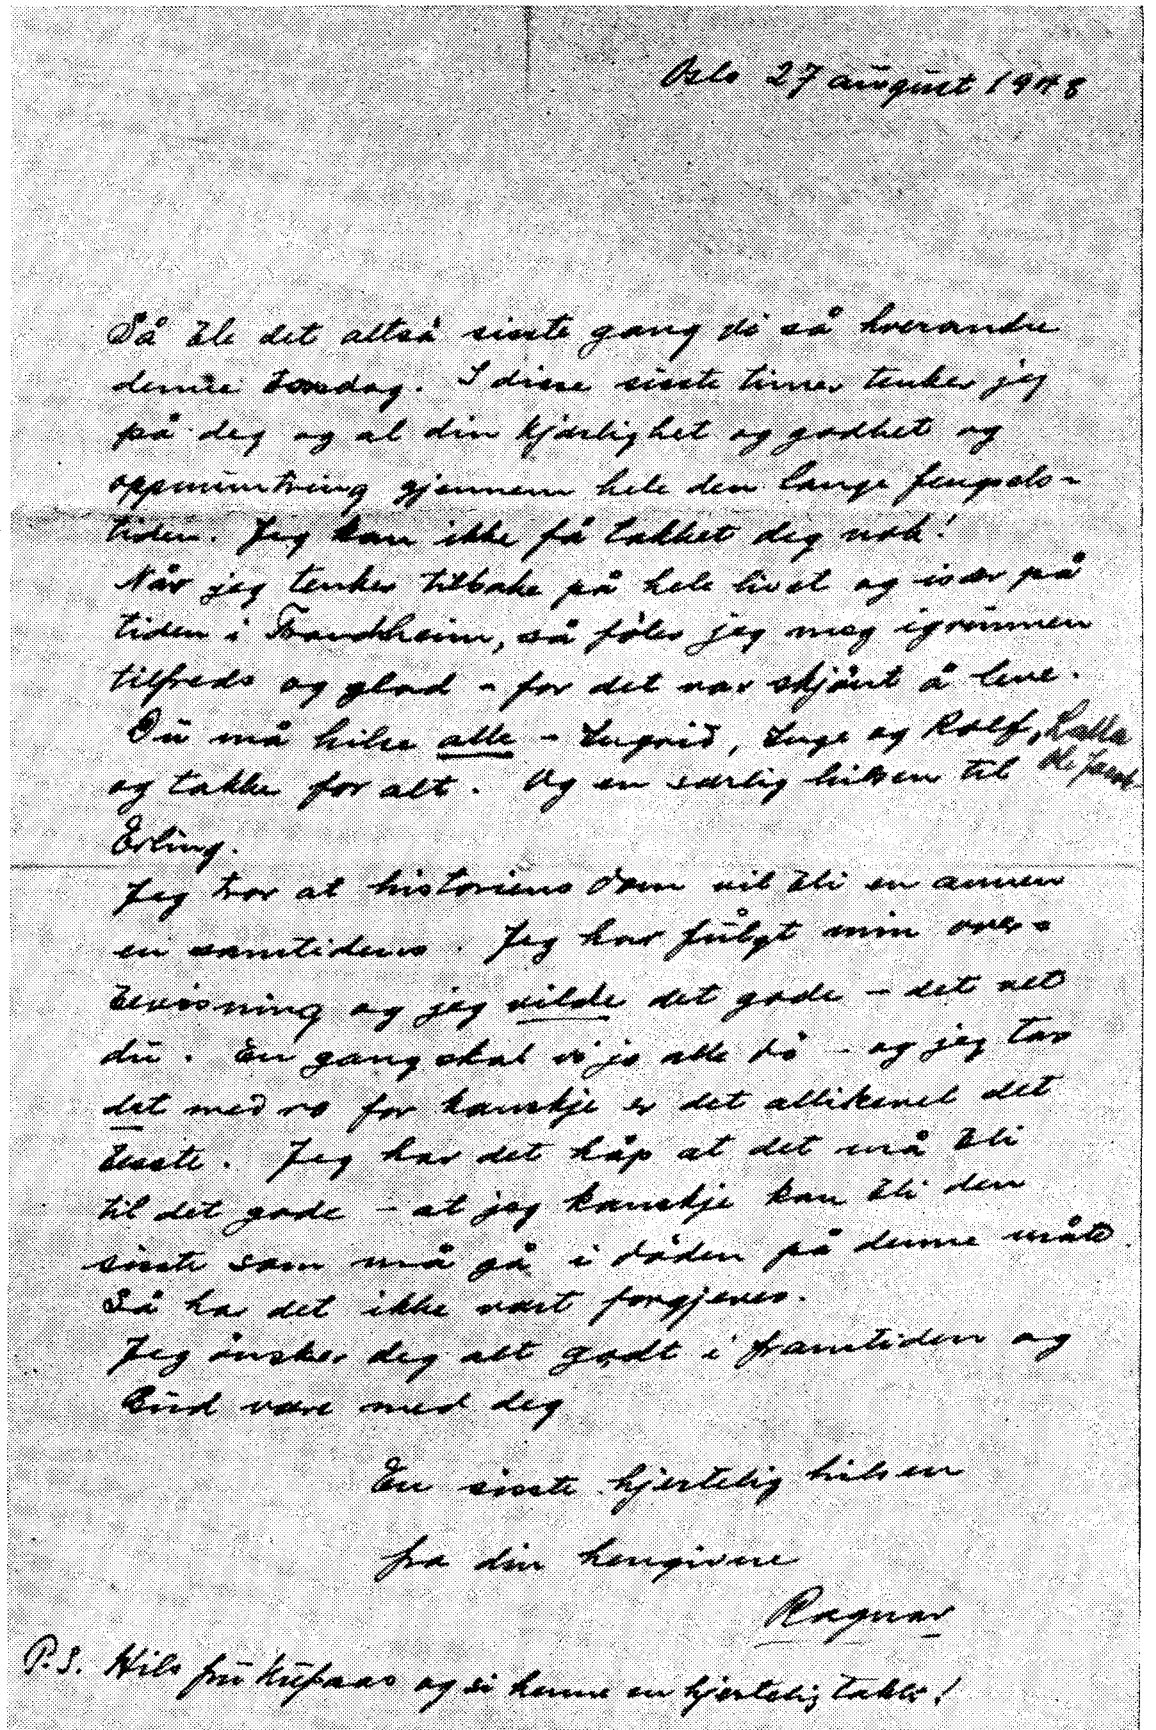 Oslo 27 august 1948
Så ble det altså siste gang vi så hverandre
denne torsdag. I disse siste timer tenker jeg
på deg og al din kjærlighet og godhet og
oppmuntring gjennem hele den lange fengsels-
tiden. Jeg kan ikke få takket dig nok!
Når jeg tenker tilbake på hele livet og især på
tiden i Trondheim, så föler jeg meg igrunnen
tilfreds og glad - for det var skjönt å leve.
Du må hilse alle - Ingrid, Inge og Rolf, Lalla
og takke for alt. Og en særlig hilsen til Ole Jacob
Erling.
Jeg tror at historiens dom vil bli en annen
en samtidens. Jeg har fulgt min over-
bevisning og jeg vilde det gode - det vet
du. En gang skal vi jo alle dö - og jeg tar
det med ro for kanskje er det allikevel det
beste. Jeg har det håp at det må bli
til det gode - at jeg kanskje kan bli den
siste som må gå i döden på denne måte.
Så har det ikke vært forgjeves.
Jeg önsker deg alt godt i framtiden og
Gud være med deg
En siste hjertelig hilsen
fra din hengivne
Ragnar
P.S. Hils fru og si henne en hjertelig takk!